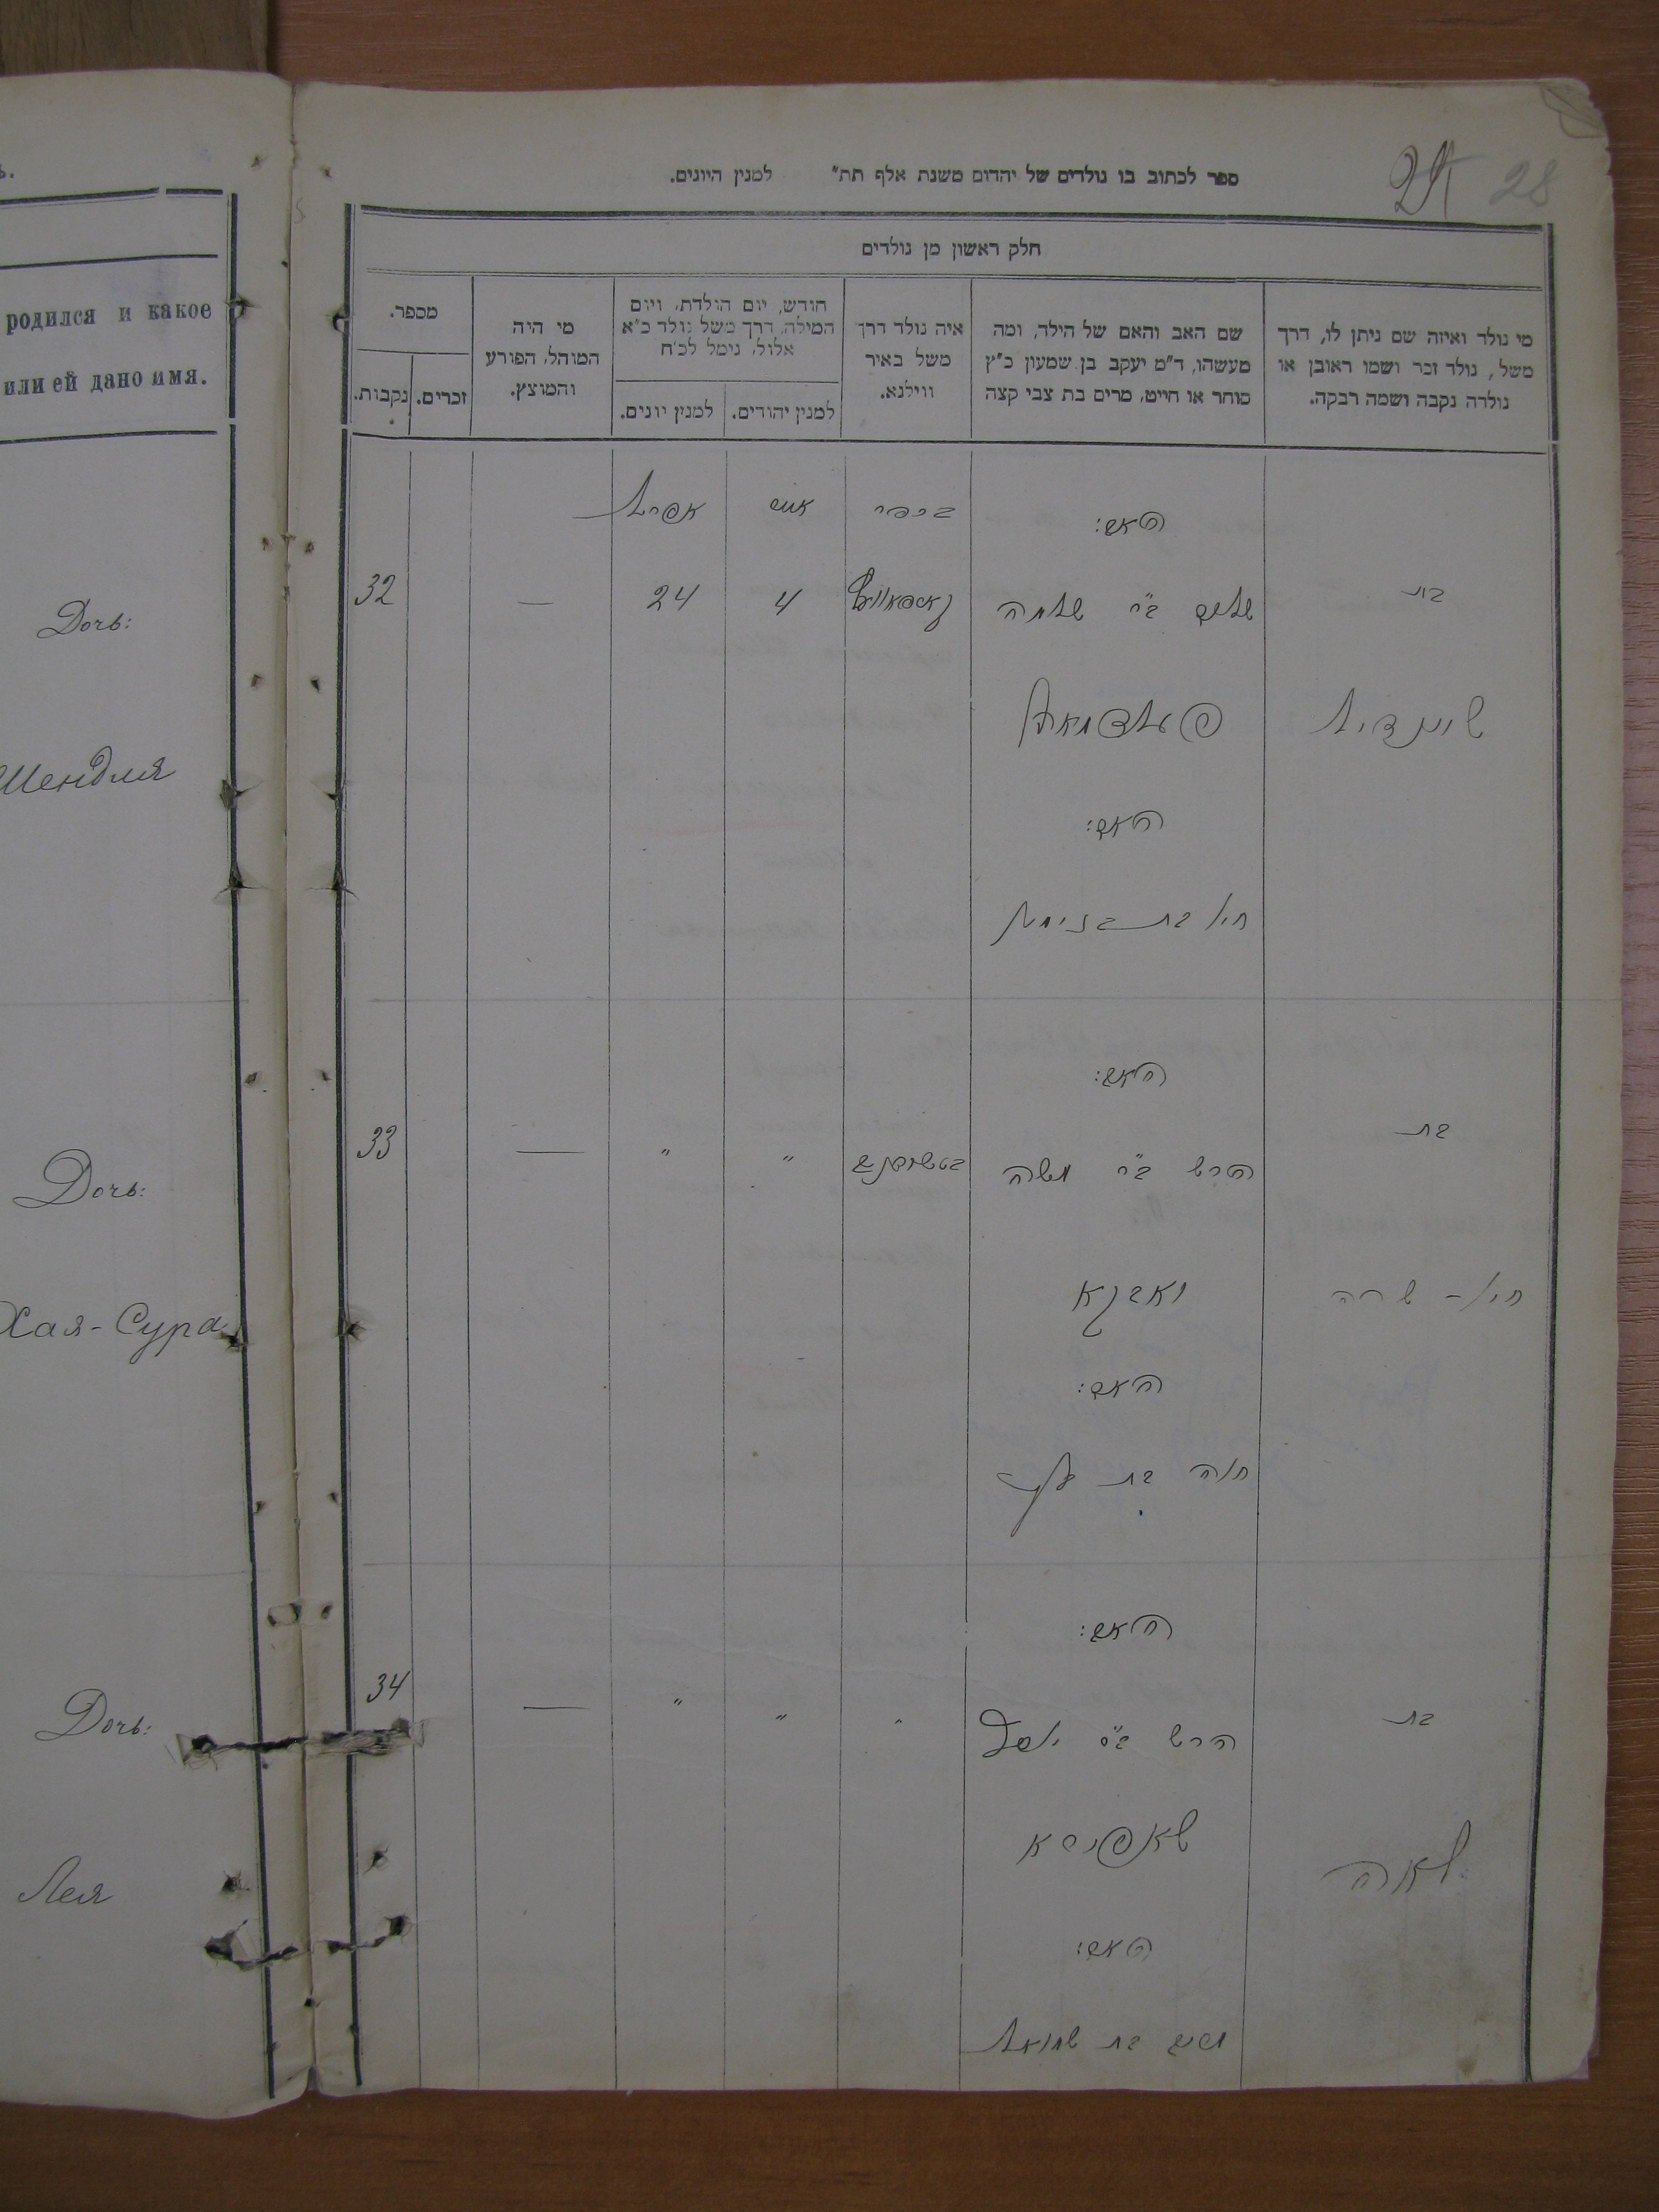 ъ.
родился и какое
или ей дано имя.
Дочь:
Шендля
Дочь:
Хая-Сура
Дочь:
Лея
28
ספר לכתוב בו נולדים של יהדים משנת אלף תת״ למנין היונים.
חלק ראשון מן נולדים
מי נולד ואיזה שם ניתן לו, דרך
משל, נולד זכר ושמו ראובן או
נולדה נקבה ושמה רבקה.
שם האב והאם של הילד, ומה
מעשהו, ד״מ יעקב בן שמעון כ״ץ
סוחר או חייט, מרים בת צבי קצה
איה נולד דרך
משל באיר
ווילנא.
חודש, יום הולדת, ויום
המילה, דרך משל נולד כ״א
אלול, נימל לכ״ח
למנין יהודים.
למנין יונים.
מי היה
המוהל, הפורע
והמוצץ.
מספר.
זכרים.
נקבות.
האב:
אפריל
בת
שלום ב״ר שלמה
4
24
—
32
שיינדיל
האם:
חי׳ בת
האב:
בת
הירש ב״ר משה
״
״
—
33
חי׳ - שרה
האם:
חוה בת
האב:
בת
הירש ב״ר יוסף
״
״
״
—
34
שאפירא
לאה
האם:
בת שמואל